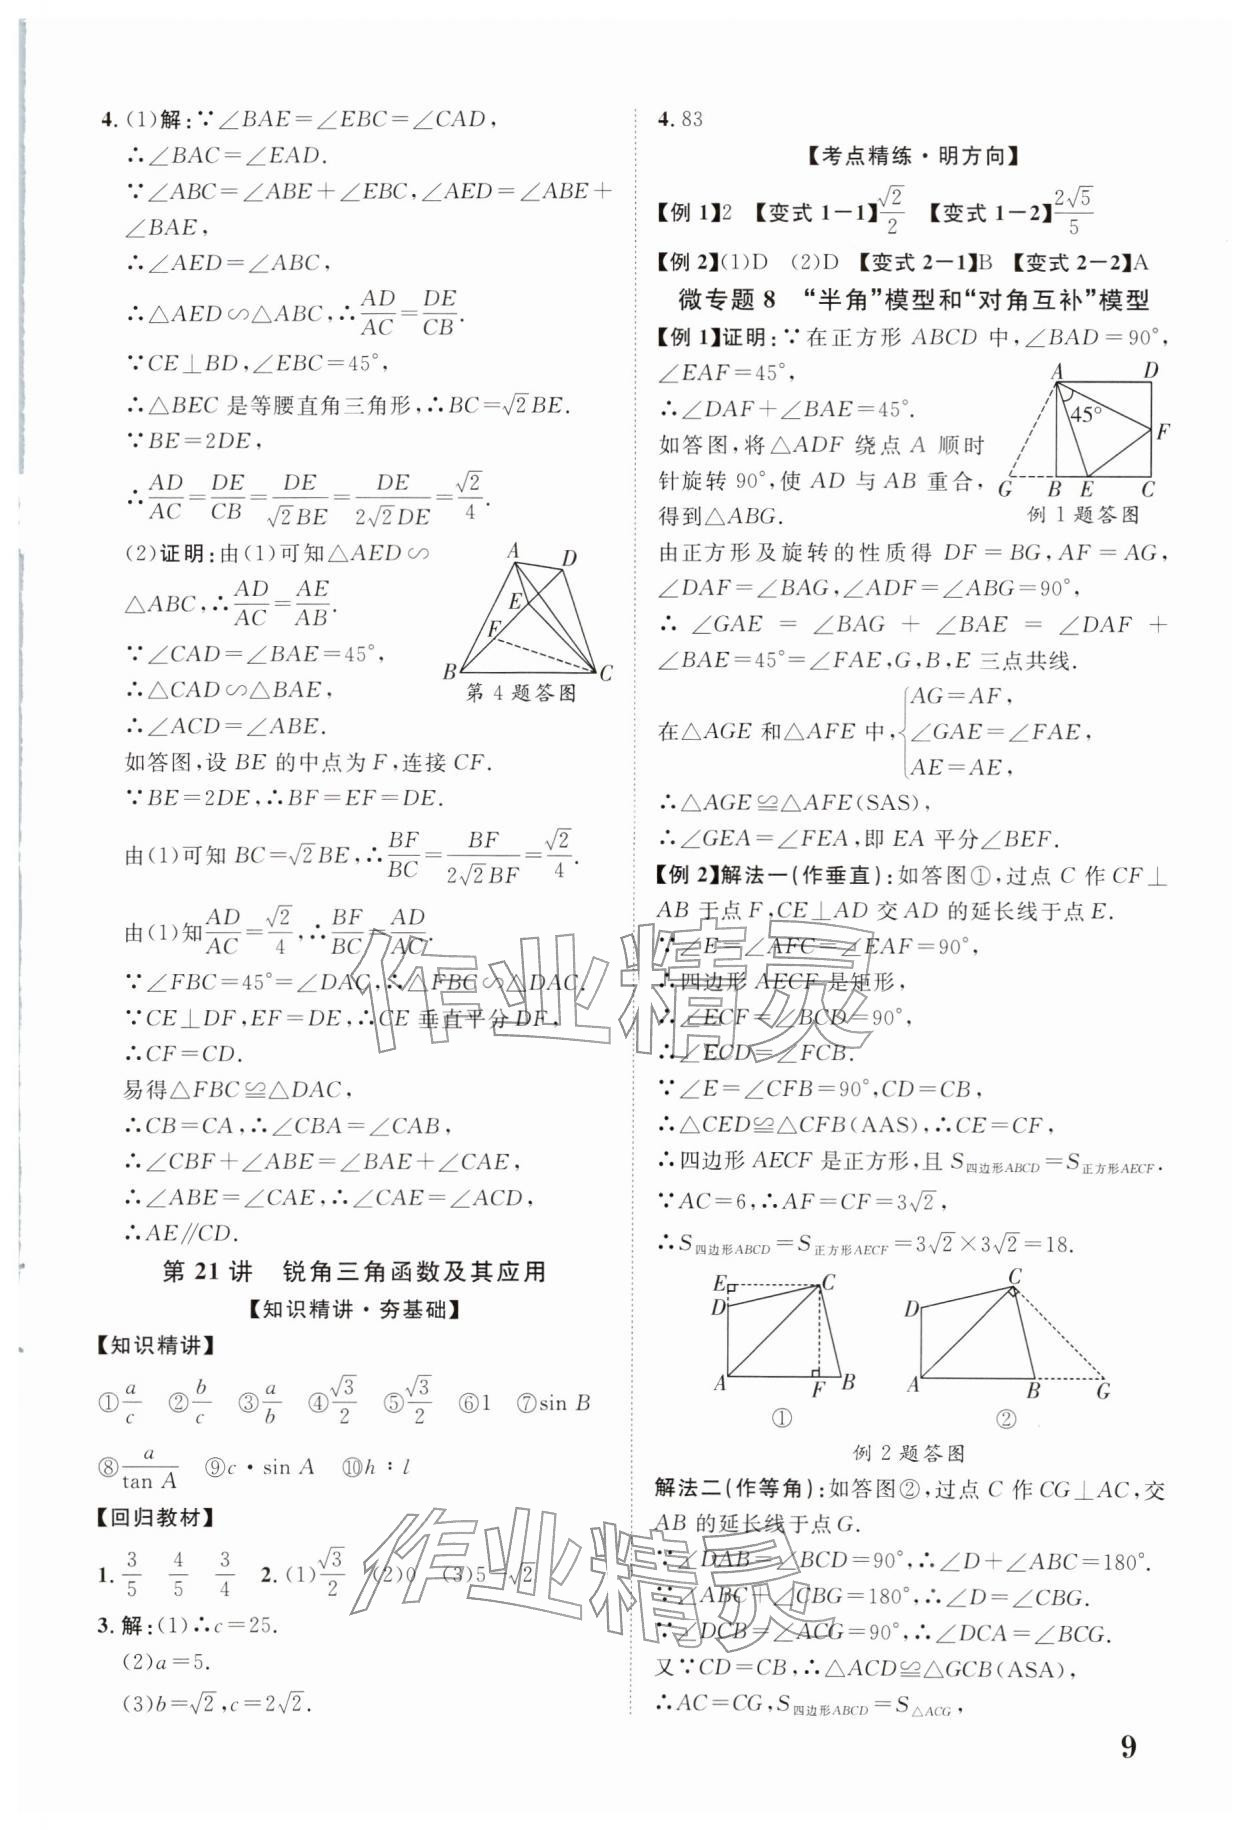 4. (1)解:∵∠BAE=∠EBC=∠CAD,
∴∠BAC=∠EAD.
∵∠ABC=∠ABE+∠EBC,∠AED=∠ABE+
∠BAE,
∴∠AED=∠ABC,
∴△AED∽△ABC,∴AD/AC=DE/CB.
∵CE⊥BD,∠EBC=45°,
∴△BEC 是等腰直角三角形,∴BC=√2BE.
∵BE=2DE,
∴AD/AC=DE/CB=DE/√2BE=DE/2√2DE=√2/4.
(2)证明:由(1)可知△AED∽
△ABC,∴AD/AC=AE/AB.
∵∠CAD=∠BAE=45°,
∴△CAD∽△BAE,
∴∠ACD=∠ABE.
A D E F B C
第 4 题答图
如答图,设 BE 的中点为 F,连接 CF.
∵BE=2DE,∴BF=EF=DE.
由(1)可知 BC=√2BE,∴BF/BC=BF/2√2BF=√2/4.
由(1)知AD/AC=√2/4,∴BF/BC=AD/AC.
∵∠FBC=45°=∠DAC,∴△FBC∽△DAC.
∵CE⊥DF,EF=DE,∴CE 垂直平分 DF,
∴CF=CD.
易得△FBC≌△DAC,
∴CB=CA,∴∠CBA=∠CAB,
∴∠CBF+∠ABE=∠BAE+∠CAE,
∴∠ABE=∠CAE,∴∠CAE=∠ACD,
∴AE∥CD.
第 21 讲 锐角三角函数及其应用
【知识精讲·夯基础】
【知识精讲】
①a/c ②b/c ③a/b ④√3/2 ⑤√3/2 ⑥1 ⑦sin B
⑧a/tan A ⑨c·sin A ⑩h∶l
【回归教材】
1. 3/5 4/5 3/4 2. (1)√3/2 (2)0 (3)5-√2
3. 解:(1)∴c=25.
(2)a=5.
(3)b=√2,c=2√2.
4. 83
【考点精练·明方向】
【例 1】2 【变式 1-1】√2/2 【变式 1-2】2√5/5
【例 2】(1)D (2)D 【变式 2-1】B 【变式 2-2】A
微专题 8 “半角”模型和“对角互补”模型
【例 1】证明:∵在正方形 ABCD 中,∠BAD=90°,
∠EAF=45°,
∴∠DAF+∠BAE=45°.
如答图,将△ADF 绕点 A 顺时
针旋转 90°,使 AD 与 AB 重合,
得到△ABG.
A D 45° F G B E C
例 1 题答图
由正方形及旋转的性质得 DF=BG,AF=AG,
∠DAF=∠BAG,∠ADF=∠ABG=90°,
∴ ∠GAE = ∠BAG + ∠BAE = ∠DAF +
∠BAE=45°=∠FAE,G,B,E 三点共线.
在△AGE 和△AFE 中,{AG=AF,
∠GAE=∠FAE,
AE=AE,
∴△AGE≌△AFE(SAS),
∴∠GEA=∠FEA,即 EA 平分∠BEF.
【例 2】解法一(作垂直):如答图①,过点 C 作 CF⊥
AB 于点 F,CE⊥AD 交 AD 的延长线于点 E.
∵∠E=∠AFC=∠EAF=90°,
∴四边形 AECF 是矩形,
∴∠ECF=∠BCD=90°,
∴∠ECD=∠FCB.
∵∠E=∠CFB=90°,CD=CB,
∴△CED≌△CFB(AAS),∴CE=CF,
∴四边形 AECF 是正方形,且 S四边形ABCD=S正方形AECF.
∵AC=6,∴AF=CF=3√2,
∴S四边形ABCD=S正方形AECF=3√2×3√2=18.
E C D A F B
①
C D A B G
②
例 2 题答图
解法二(作等角):如答图②,过点 C 作 CG⊥AC,交
AB 的延长线于点 G.
∵∠DAB=∠BCD=90°,∴∠D+∠ABC=180°.
∵∠ABC+∠CBG=180°,∴∠D=∠CBG.
∵∠DCB=∠ACG=90°,∴∠DCA=∠BCG.
又∵CD=CB,∴△ACD≌△GCB(ASA),
∴AC=CG,S四边形ABCD=S△ACG,
9
作业精灵
作业精灵